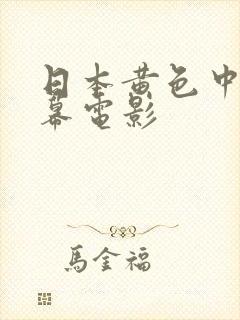 日本黄色中
幕電影
馬金福